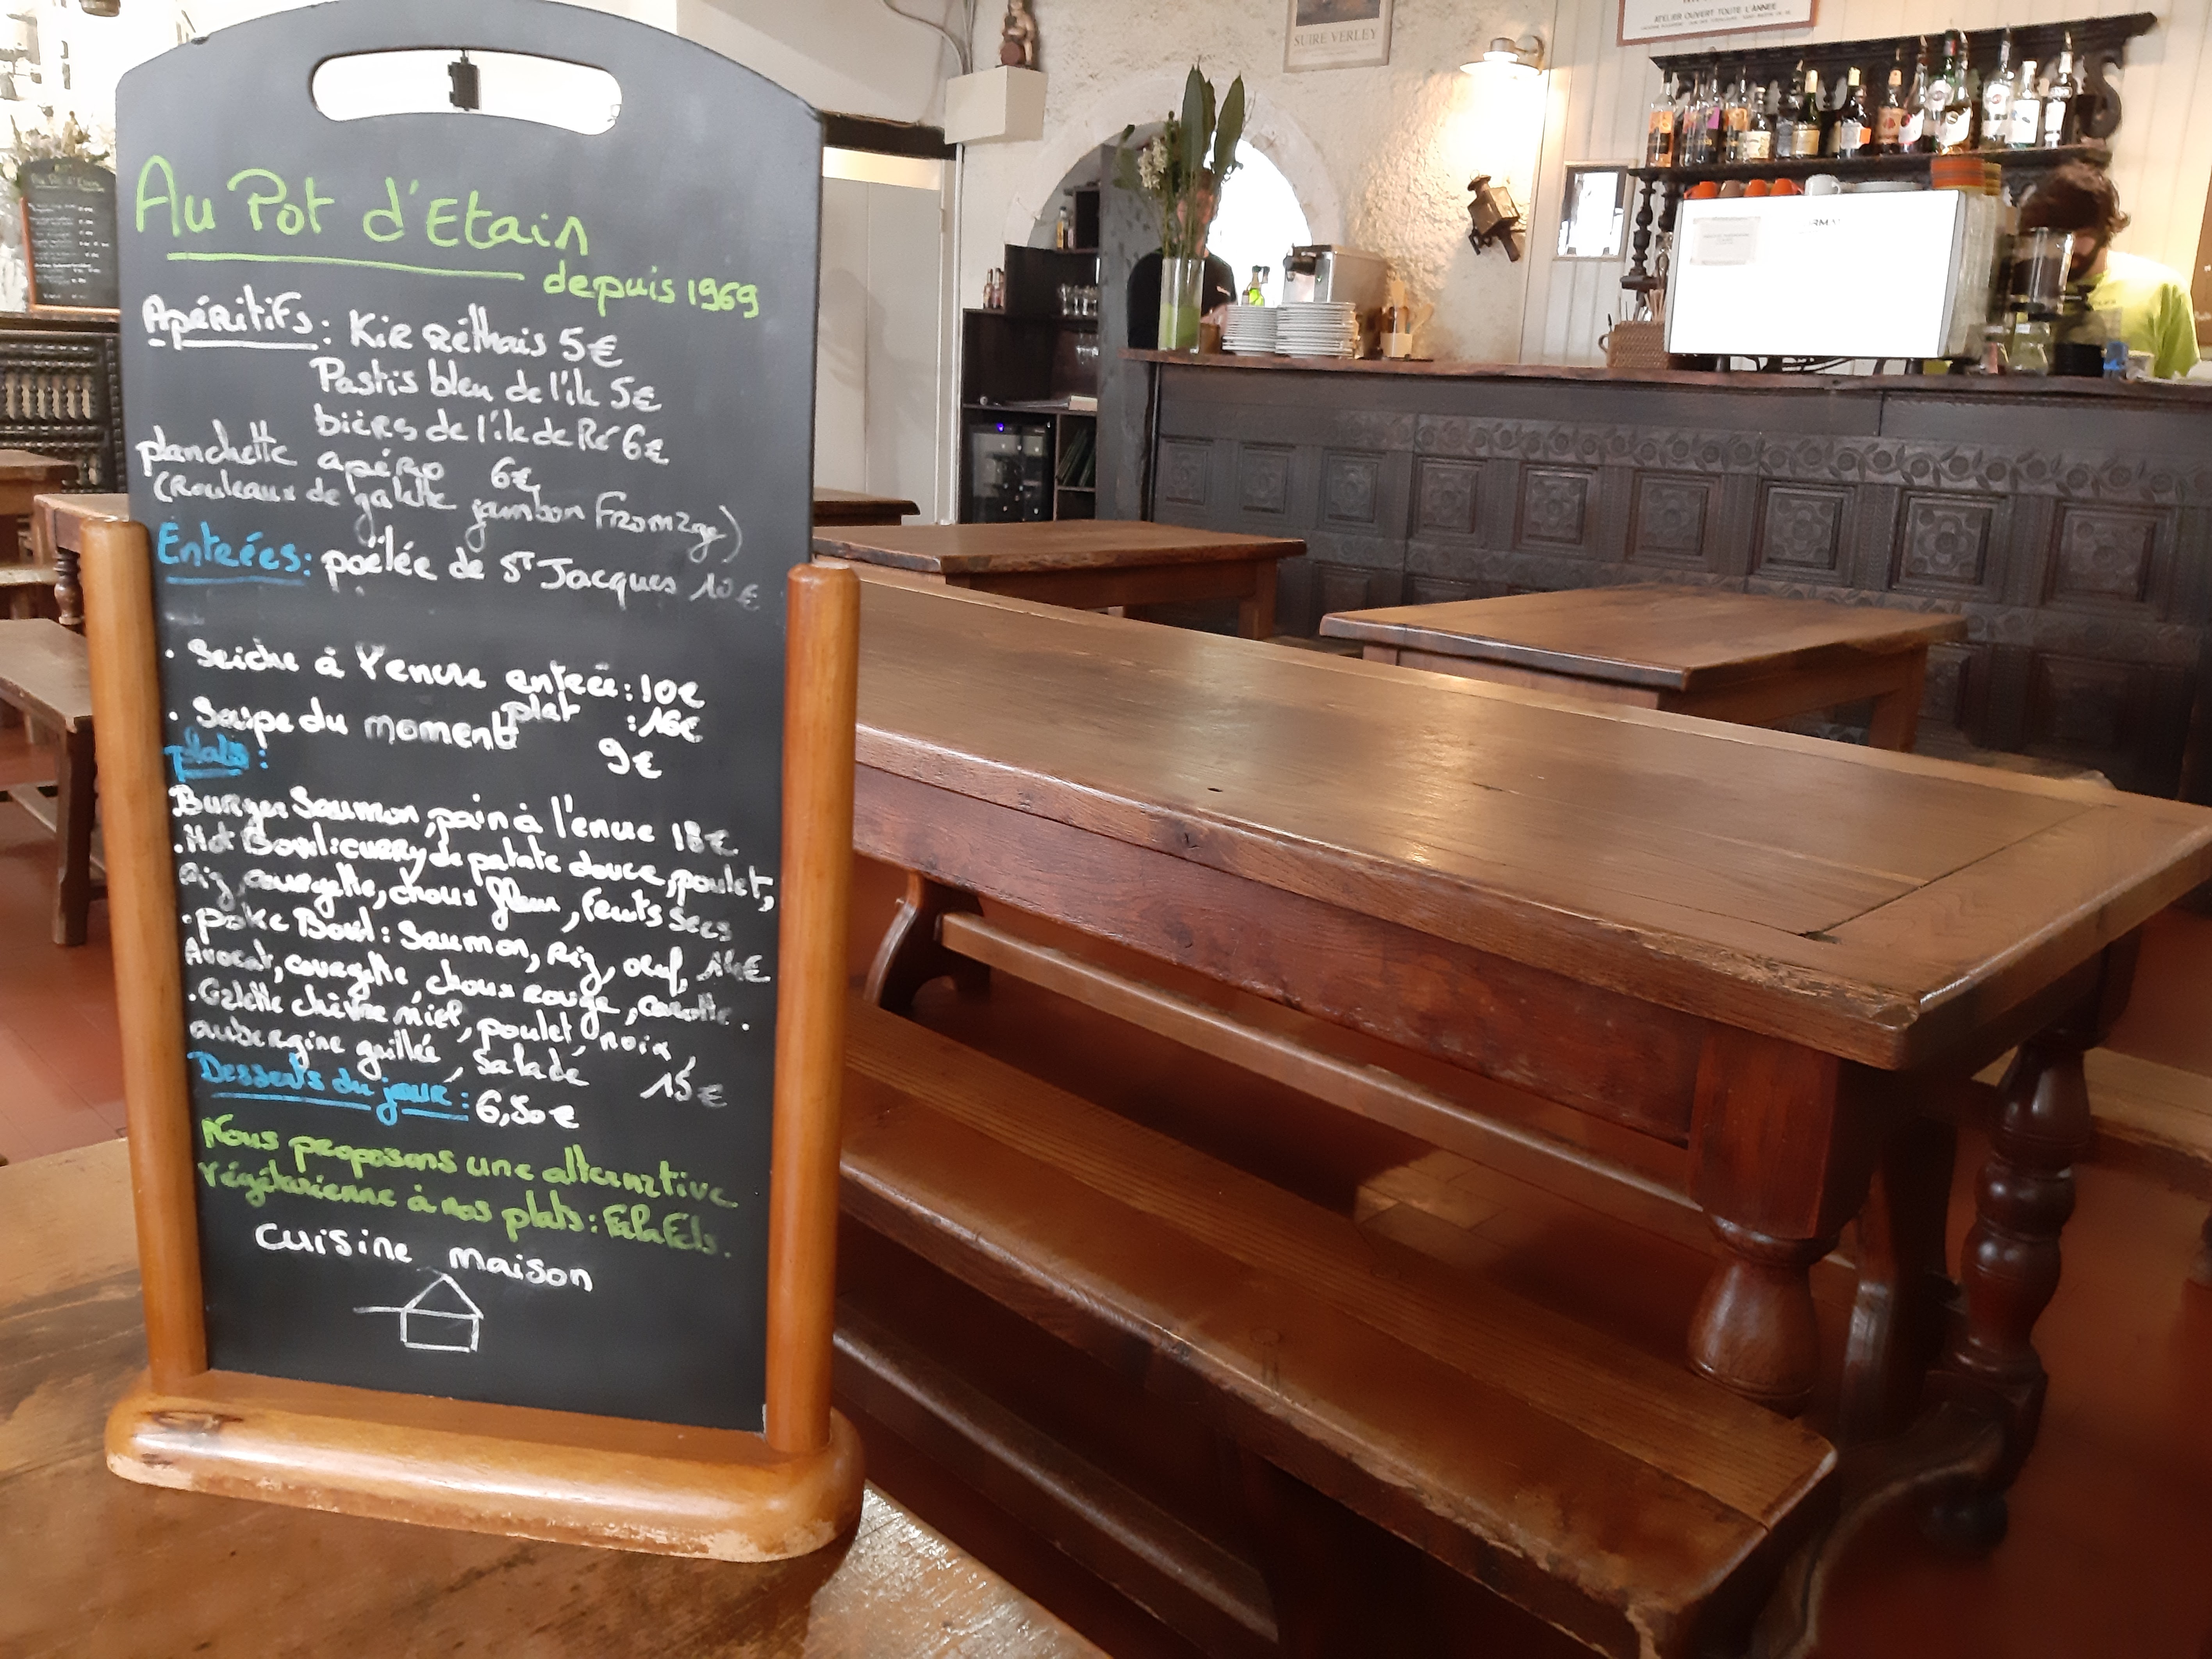 Au Pot d'Etain
depuis 1969
Apéritifs: Kir réthais 5€
Pastis bleu de l'île 5€
bières de l'île de Ré 6€
planchette apéro 6€
(Rouleaux de galette jambon fromage)
Entrées: poêlée de St Jacques 10€
. Seiche à l'encre entrée: 10€
plat : 16€
. Soupe du moment 9€
plats:
Burger Saumon, pain à l'encre 18€
. Hot Bowl: curry de patate douce, poulet,
Riz, courgette, choux fleur, fruits secs
. poke Bowl: Saumon, Riz, oeuf,
Avocat, courgette, choux rouge, carotte.
. Galette chèvre miel, poulet, noix,
aubergine grillée, salade 15€
Desserts du jour: 6,50€
Nous proposons une alternative
Végétarienne à nos plats: Falafels.
Cuisine Maison
SUIRE VERLEY
ATELIER OUVERT TOUTE L'ANNEE
Au Pot d'Etain